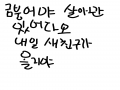 금붕어야 살아만
있어다오
내일 새 친구가
올거야